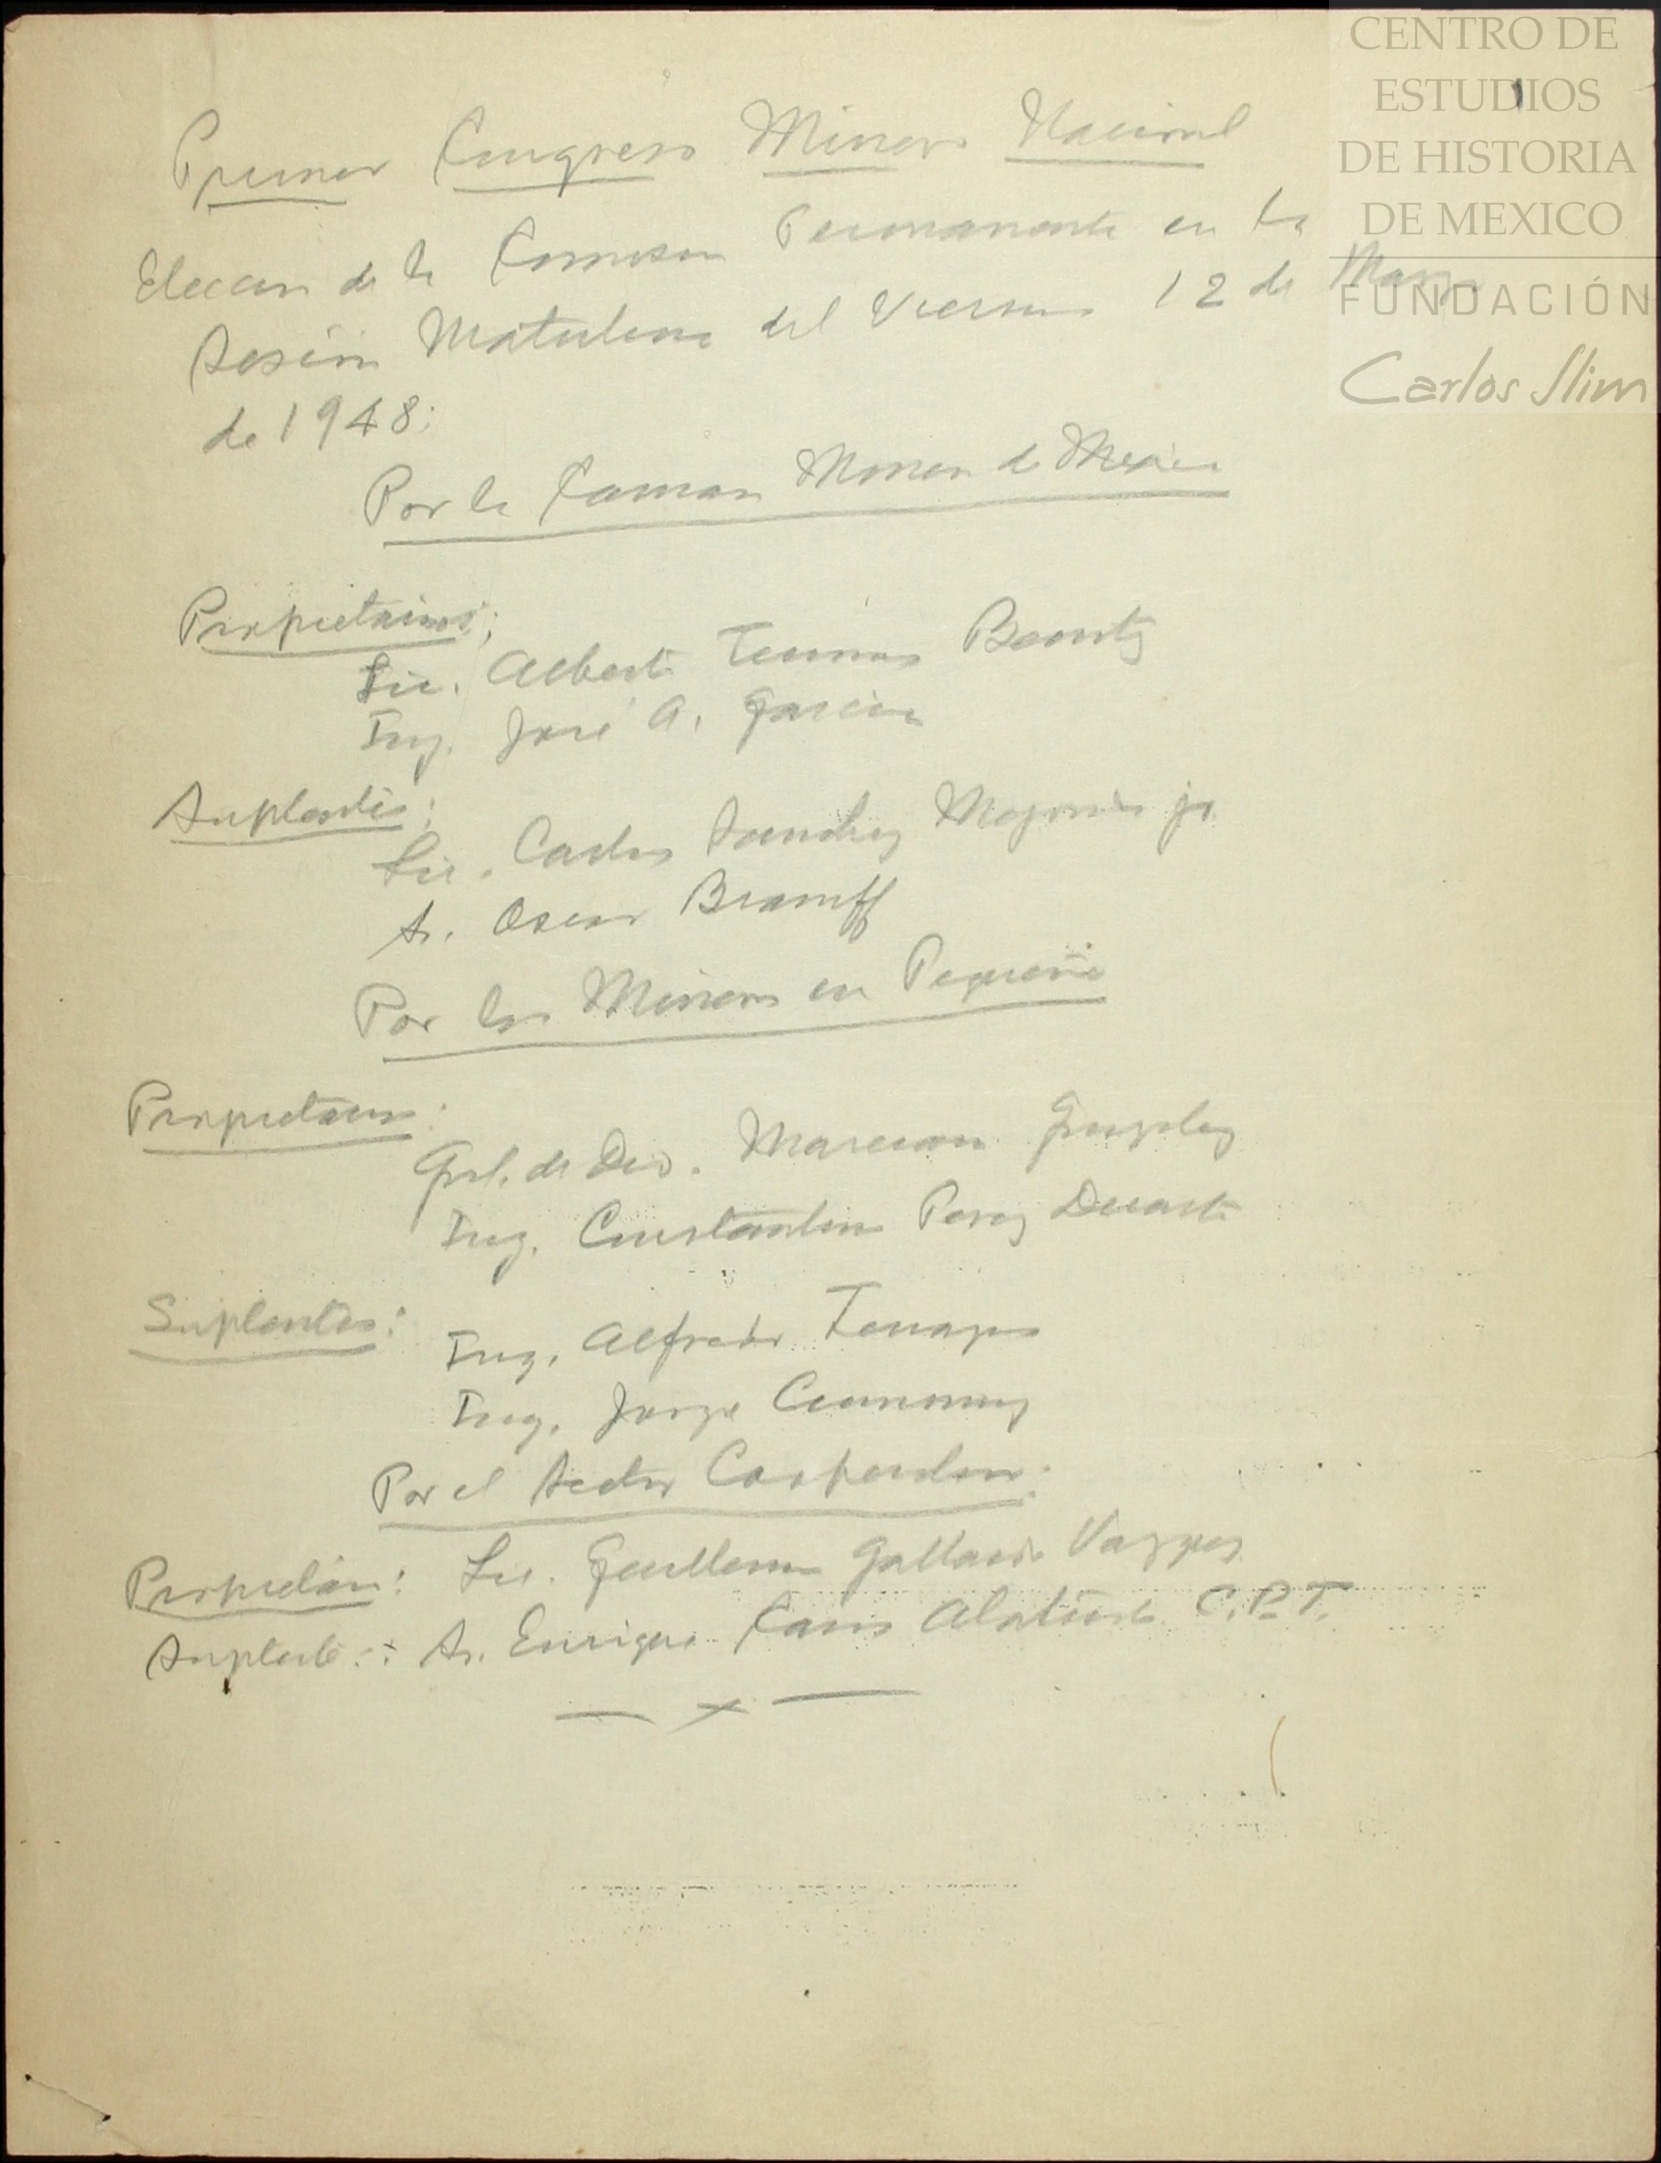 Primer Congreso Minero Nacional
Eleccion de la Comision Permanente en la
Sesión Matutina del Viernes 12 de Marzo
de 1948:
Por la Camara Minera de Mexico
Propietarios:
Lic. Alberto Terrones Benitez
Ing. José A. Garcia
Suplentes:
Lic. Carlos Sanchez Mejorada jr.
Sr. Oscar Braniff
Por los Mineros en Pequeño
Propietarios:
Gral. de Div. Marciano Gonzalez
Ing. Constantino Perez Duarte
Suplentes:
Ing. Alfredo Terrazas
Ing. Jorge Cumming
Por el Sector Cooperativo:
Propietario: Lic. Guillermo Gallardo Vazquez
Suplente: Sr. Enrique Alatriste C.P.T.
CENTRO DE
ESTUDIOS
DE HISTORIA
DE MEXICO
FUNDACIÓN
Carlos Slim